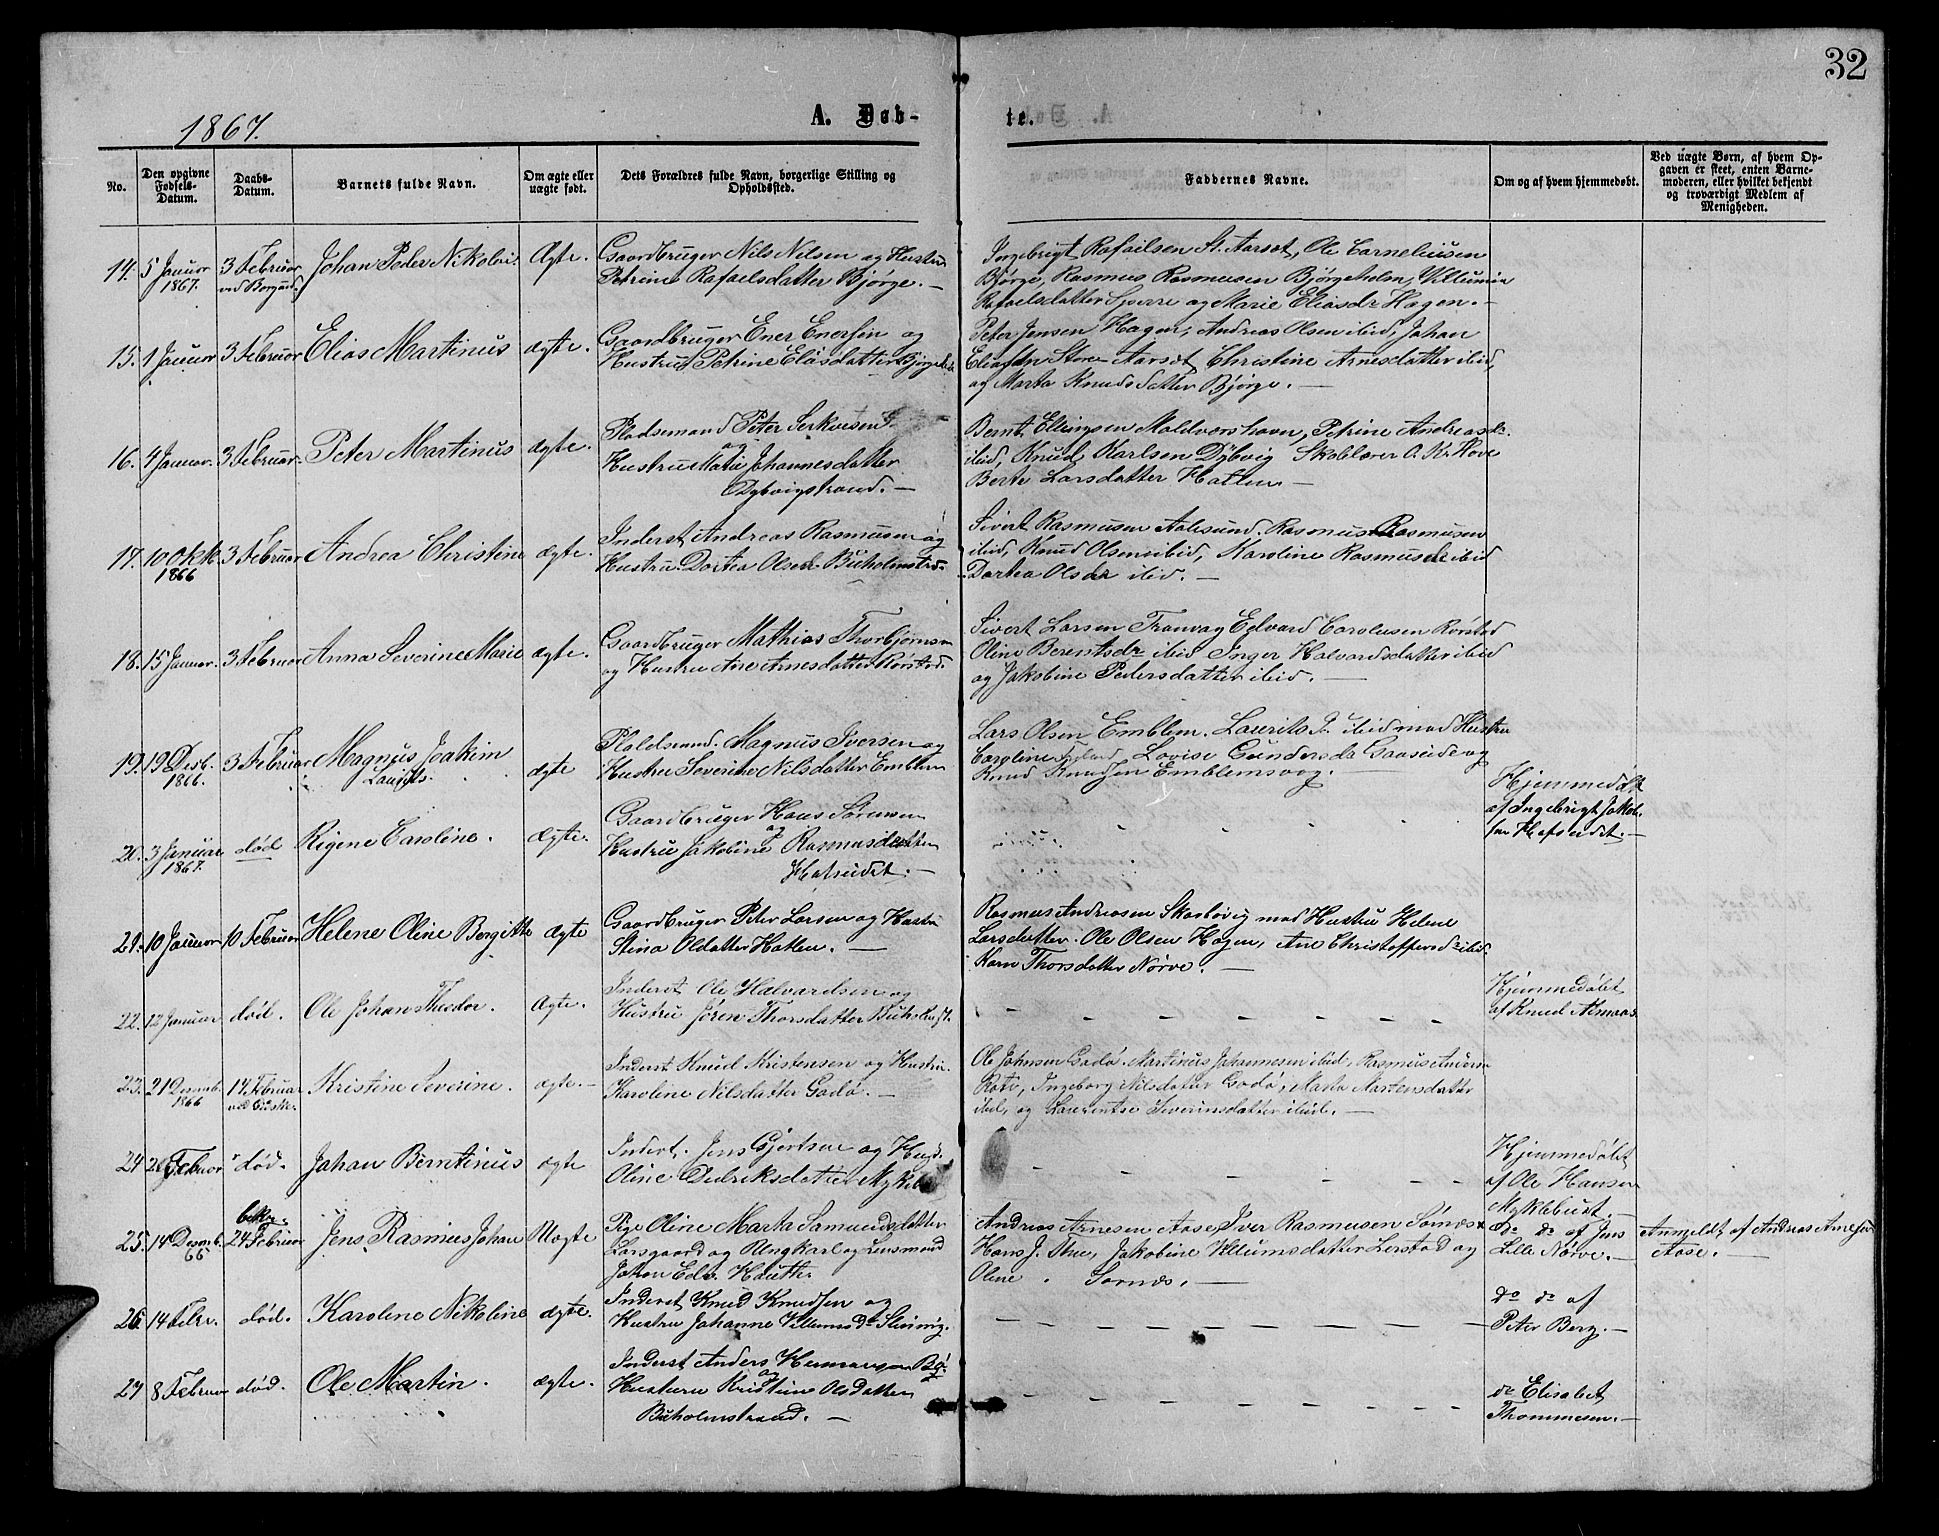 32
1867.
A. Døb-
te.
No.
Den opgivne Fødsels-Datum.
Daabs-Datum.
Barnets fulde Navn.
Om ægte eller uægte født.
Dets Forældres fulde Navn, borgerlige Stilling og Opholdssted.
Faddernes Navne.
Om og af hvem hjemmedøbt.
Ved uægte Børn, af hvem Opgaven er skeet, enten Barnemoderen, eller hvilket bekjendt og troværdigt Medlem af Menigheden.
14. 5 Januar 1867. 3 Februar ved Borgund. Johan Peder Nikolai. Ægte.
Gaardbruger Nils Nilsen og Hustru
Petrine Rafaelsdatter Bjørge. —
Ingebrigt Rafailsen St. Aarset, Ole Corneliusen
Bjørge, Rasmus Rasmusen Bjørgeholm, Villumine
Rafaelsdatter Sperre og Marie Eliasdr Hagen. —
15. 1 Januar 3 Februar Elias Martinus ægte.
Gaardbruger Ener Enersen og
Hustru Petrine Eliasdatter Bjørge
Peter Jensen Hagen, Andreas Olsen ibid, Johan
Eliassen Store Aarset Christine Arnesdatter ibid,
og Marta Knudsdatter Bjørge. —
16. 4 Januar. 3 Februar. Peter Martinus ægte.
Pladsemand Peter
og
Hustru Johannesdatter
Dybvigstrand. —
Bernt Ellingsen Moldvorshavn, Petrine Andreasdr.
ibid, Knud Karlsen Dybvig Skolelærer O. Kr. Hove
Berte Larsdatter Hatlen. —
17. 10 Oktb. 1866 3 Februar Andrea Christine ægte.
Inderst Andreas Rasmusen og
Hustru Dortea Olsdr Buholmstrd.
Sivert Rasmusen Aalesund. Rasmus Rasmusen
ibid, Knud Olsen ibid, Karoline Rasmusdr ibid
Dortea Olsdr ibid. —
18. 15 Januar. 3 Februar Anna Severine Marie ægte.
Gaardbruger Mathias Thorbjørnsen
og Hustru Ane Arnesdatter Rørstad.
Sivert Larsen Tranvag Edvard Carolusen Rørstad
Oline Berentsdr ibid Inger Halvardsdatter ibid
og Jakobine Pedersdatter ibid. —
19. 19 Desb. 1866. 3 Februar Magnus Joakim
Laurits. ægte
Pladsmand. Magnus Iversen og
Hustru Severine Nilsdatter Emblem
Lars Olsen Emblem. Laurits ibid med Hustru
Caroline Lovise Gundersdr Gaaseide og
Knud Knudsen Emblemsvag. —
20. 3 Januar 1867. død Rigene Caroline. ægte.
Gaardbruger Hans Sørensen
og
Hustru Jakobine Rasmusdatter
Hatseidet. —
Hjemmedøbt
af Ingebrigt Jakob-
sen Hafseidet. —
21. 10 Januar 10 Februar Helene Oline Bergitte ægte
Gaardbruger Peter Larsen og Hustru
Stina Oldatter Hatlen. —
Rasmus Andreasen Skarbøvig med Hustru Helene
Larsdatter. Ole Olsen Hagen, Ane Christoffersdr ibid.
Karn Thorsdatter Nørve. —
22. 12 Januar død. Ole Johan Theodor. Ægte.
Inderst Ole Halvardsen og
Hustru Jøren Thorsdatter
Hjemmedøbt
af Knud Almaas
23. 21 Desemb. 1866 14 Februar Kristine Severine. ægte. —
Inderst Knud Kristensen og Hustru
Karoline Nilsdatter Godø. —
Ole Johnsen Godø. Martinus Johannesen ibid, Rasmus
Ingeborg Nilsdatter Godø, Marta Martensdatter
ibid, og Laurentse Severinsdatter ibid. —
24 Februar død. Johan Berntinus ægte
Inderst. Jens Gjertsen og Hust.
Oline Didriksdatter
Hjemmedøbt
af Ole Hansen
Myklebust. —
25. 14 Desemb. 66 bekr. 24 Februar Jens Rasmus Johan Uægte
Pige Oline Marta Samuelsdatter
Larsgaard og Ungkarl og Lensmand
Johan Edv.
Andreas Arnesen Aase, Iver Rasmusen Sørnes
Hans J. Thue, Jakobine Villumsdatter Lerstad og
Oline . Sørnæs. —
do do af Jens
Lille Nørve. —
Anmeldt af Andreas Arnesen
Aase. —
26. 14 Febr. død. Karoline Nikoline ægte.
Inderst Knud Knudsen og
Hustru Johanne Villumsdr
do do af
Peter Berg. —
27 8 Februar død. Ole Martin. ægte.
Inderst Anders
og
Hustru Kristine Olsdatter
Buholmstrand. —
do Elisabet
Thommesen. —